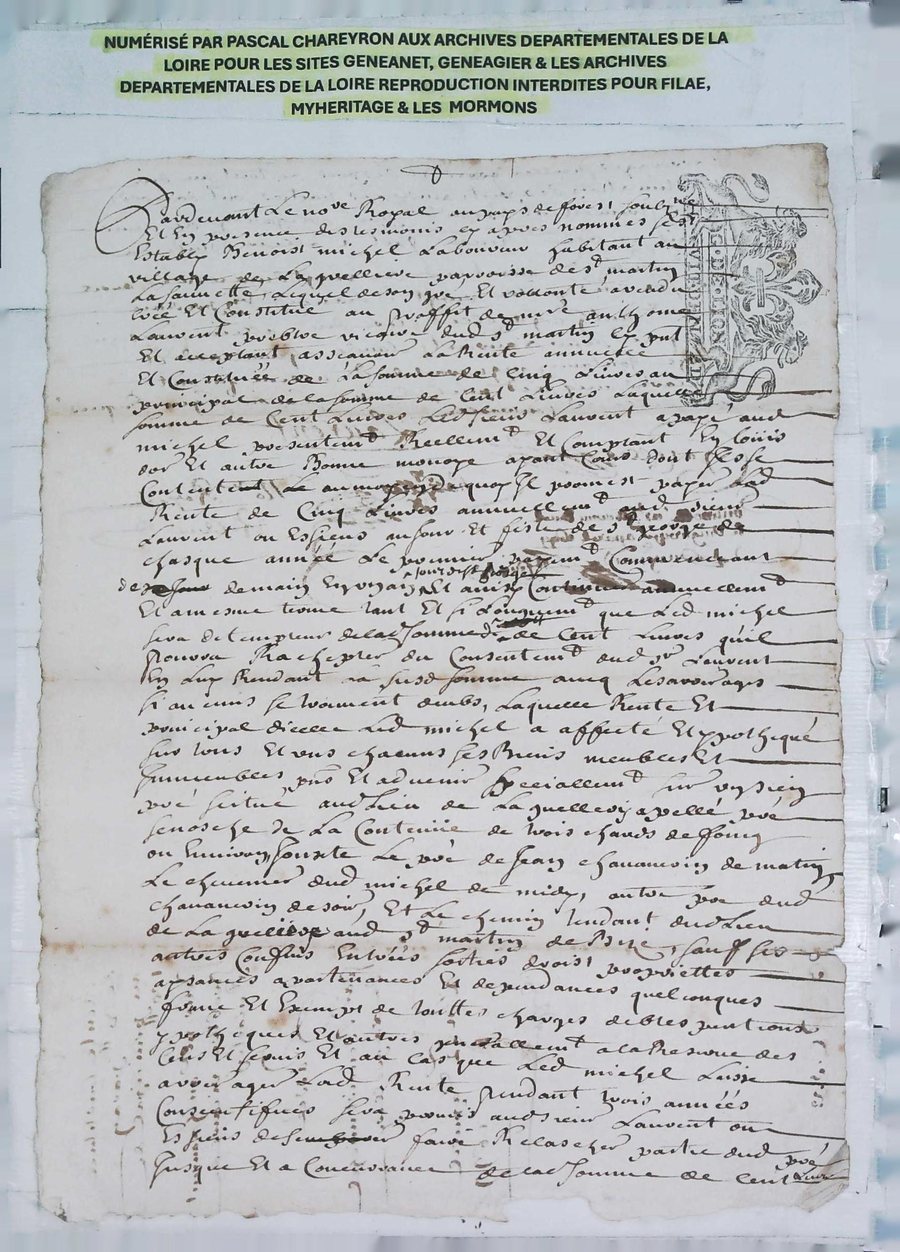 NUMÉRISÉ PAR PASCAL CHAREYRON AUX ARCHIVES DEPARTEMENTALES DE LA
LOIRE POUR LES SITES GENEANET, GENEAGIER & LES ARCHIVES
DEPARTEMENTALES DE LA LOIRE REPRODUCTION INTERDITES POUR FILAE,
MYHERITAGE & LES MORMONS
Pardevant Le nore Royal au pays de forest soubzne
Et En presence des tesmoins cy apres nommes sest
Estably Benoist michel Laboureur habitant au
village de La parroisse de st martin
Lequel de son gré Et vollonte a vendu
Et Constitué au proffit de anthome
Laurent prebtre vicaire dud st martin
Et acceptant assavoir La Rente annuelle
Et Constituée de La somme de Cinq Livres au
principal de la somme de Cent Livres Laquelle
somme de Cent Livres Led sieur Laurent a payé aud
michel presentemt Reellemt Et Comptant En louis
dor Et autre Bonne monoye ayant Cours dont Il se
Contente au moyend quoy Il promet payer Lad
Rente de Cinq Livres annuellemt aud sieur
Laurent ou Es siens au jour Et feste de st george de
chasque année Le premier payemt Commencant
demain Et ainsy Continuer annuellemt
Et a mesme terme tant Et si Longuemt que Led michel
sera detempteur de lad somme de Cent Livres quil
pourra Rachepter du Consentemt dud sr Laurent
En Luy Rendant La susd somme avec Les arrerages
si aucuns se trouvent deubs, Laquelle Rente Et
principal dicelle Led michel a affecté Et ypothequé
sur tous Et uns chacuns ses Biens meubles Et
Immeubles pnts Et advenir speciallemt sur ung sien
pré scitué aud Lieu de La appellé pré
de La Contenue de trois chards de foing
ou Environ, Jouxte Le pré de Jean de matin
Le dud michel de midy, autre pré dud
de soir, Et Le chemin tendant dud Lieu
de La aud st martin de Bize, sauf ses
autres Confins Entrées sorties droits proprietes
aysances apartenances Et dependances quelconques
franc Et Exempt de touttes charges debtes pentions
ypotheques Et autres a la Reserve des
Cens Et servis Et au Cas que Led michel Laisse
arrerager Lad Rente Pendant trois années
Consecutifves sera permis aud sieur Laurent ou
Es siens de faire Relascher partie dud pré
Jusque Et a Concurrance de lad somme de Cent Livres